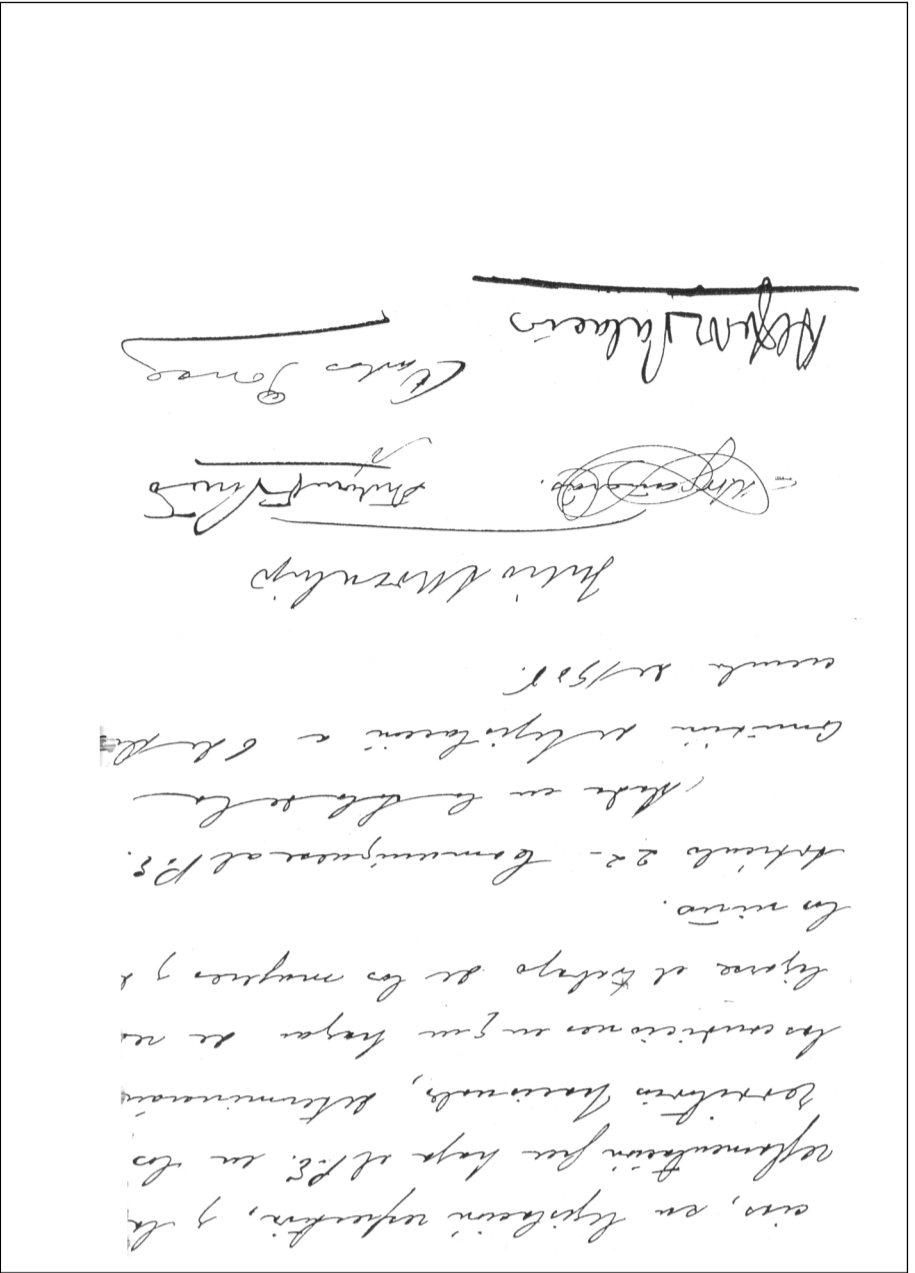 cias, en legislación respectiva, y la
reglamentación que haga el P.E. en los
territorios nacionales, determinarán
las condiciones en que haya de re
alizarse el trabajo de las mujeres y
los niños.
Artículo 22 - Comuníquese al P.E.
Dada en la Sala de la
Comisión de Legislación a 6 de
de 190
Julio
Antonio F. Piñero
Alfredo L. Palacios
Carlos